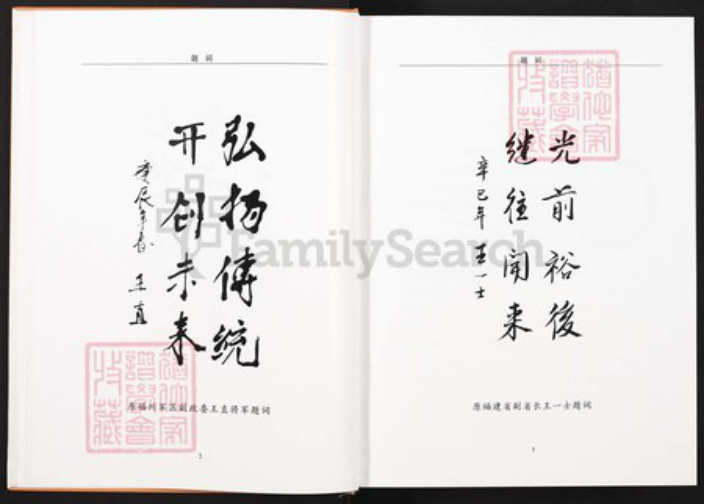 题词
弘扬傳統
开创未来
庚辰年春 王直
原福州军区副政委王直将军题词
2
题词
光前裕後
继往開来
辛巳年 王一士
原福建省副省长王一士题词
3
FamilySearch